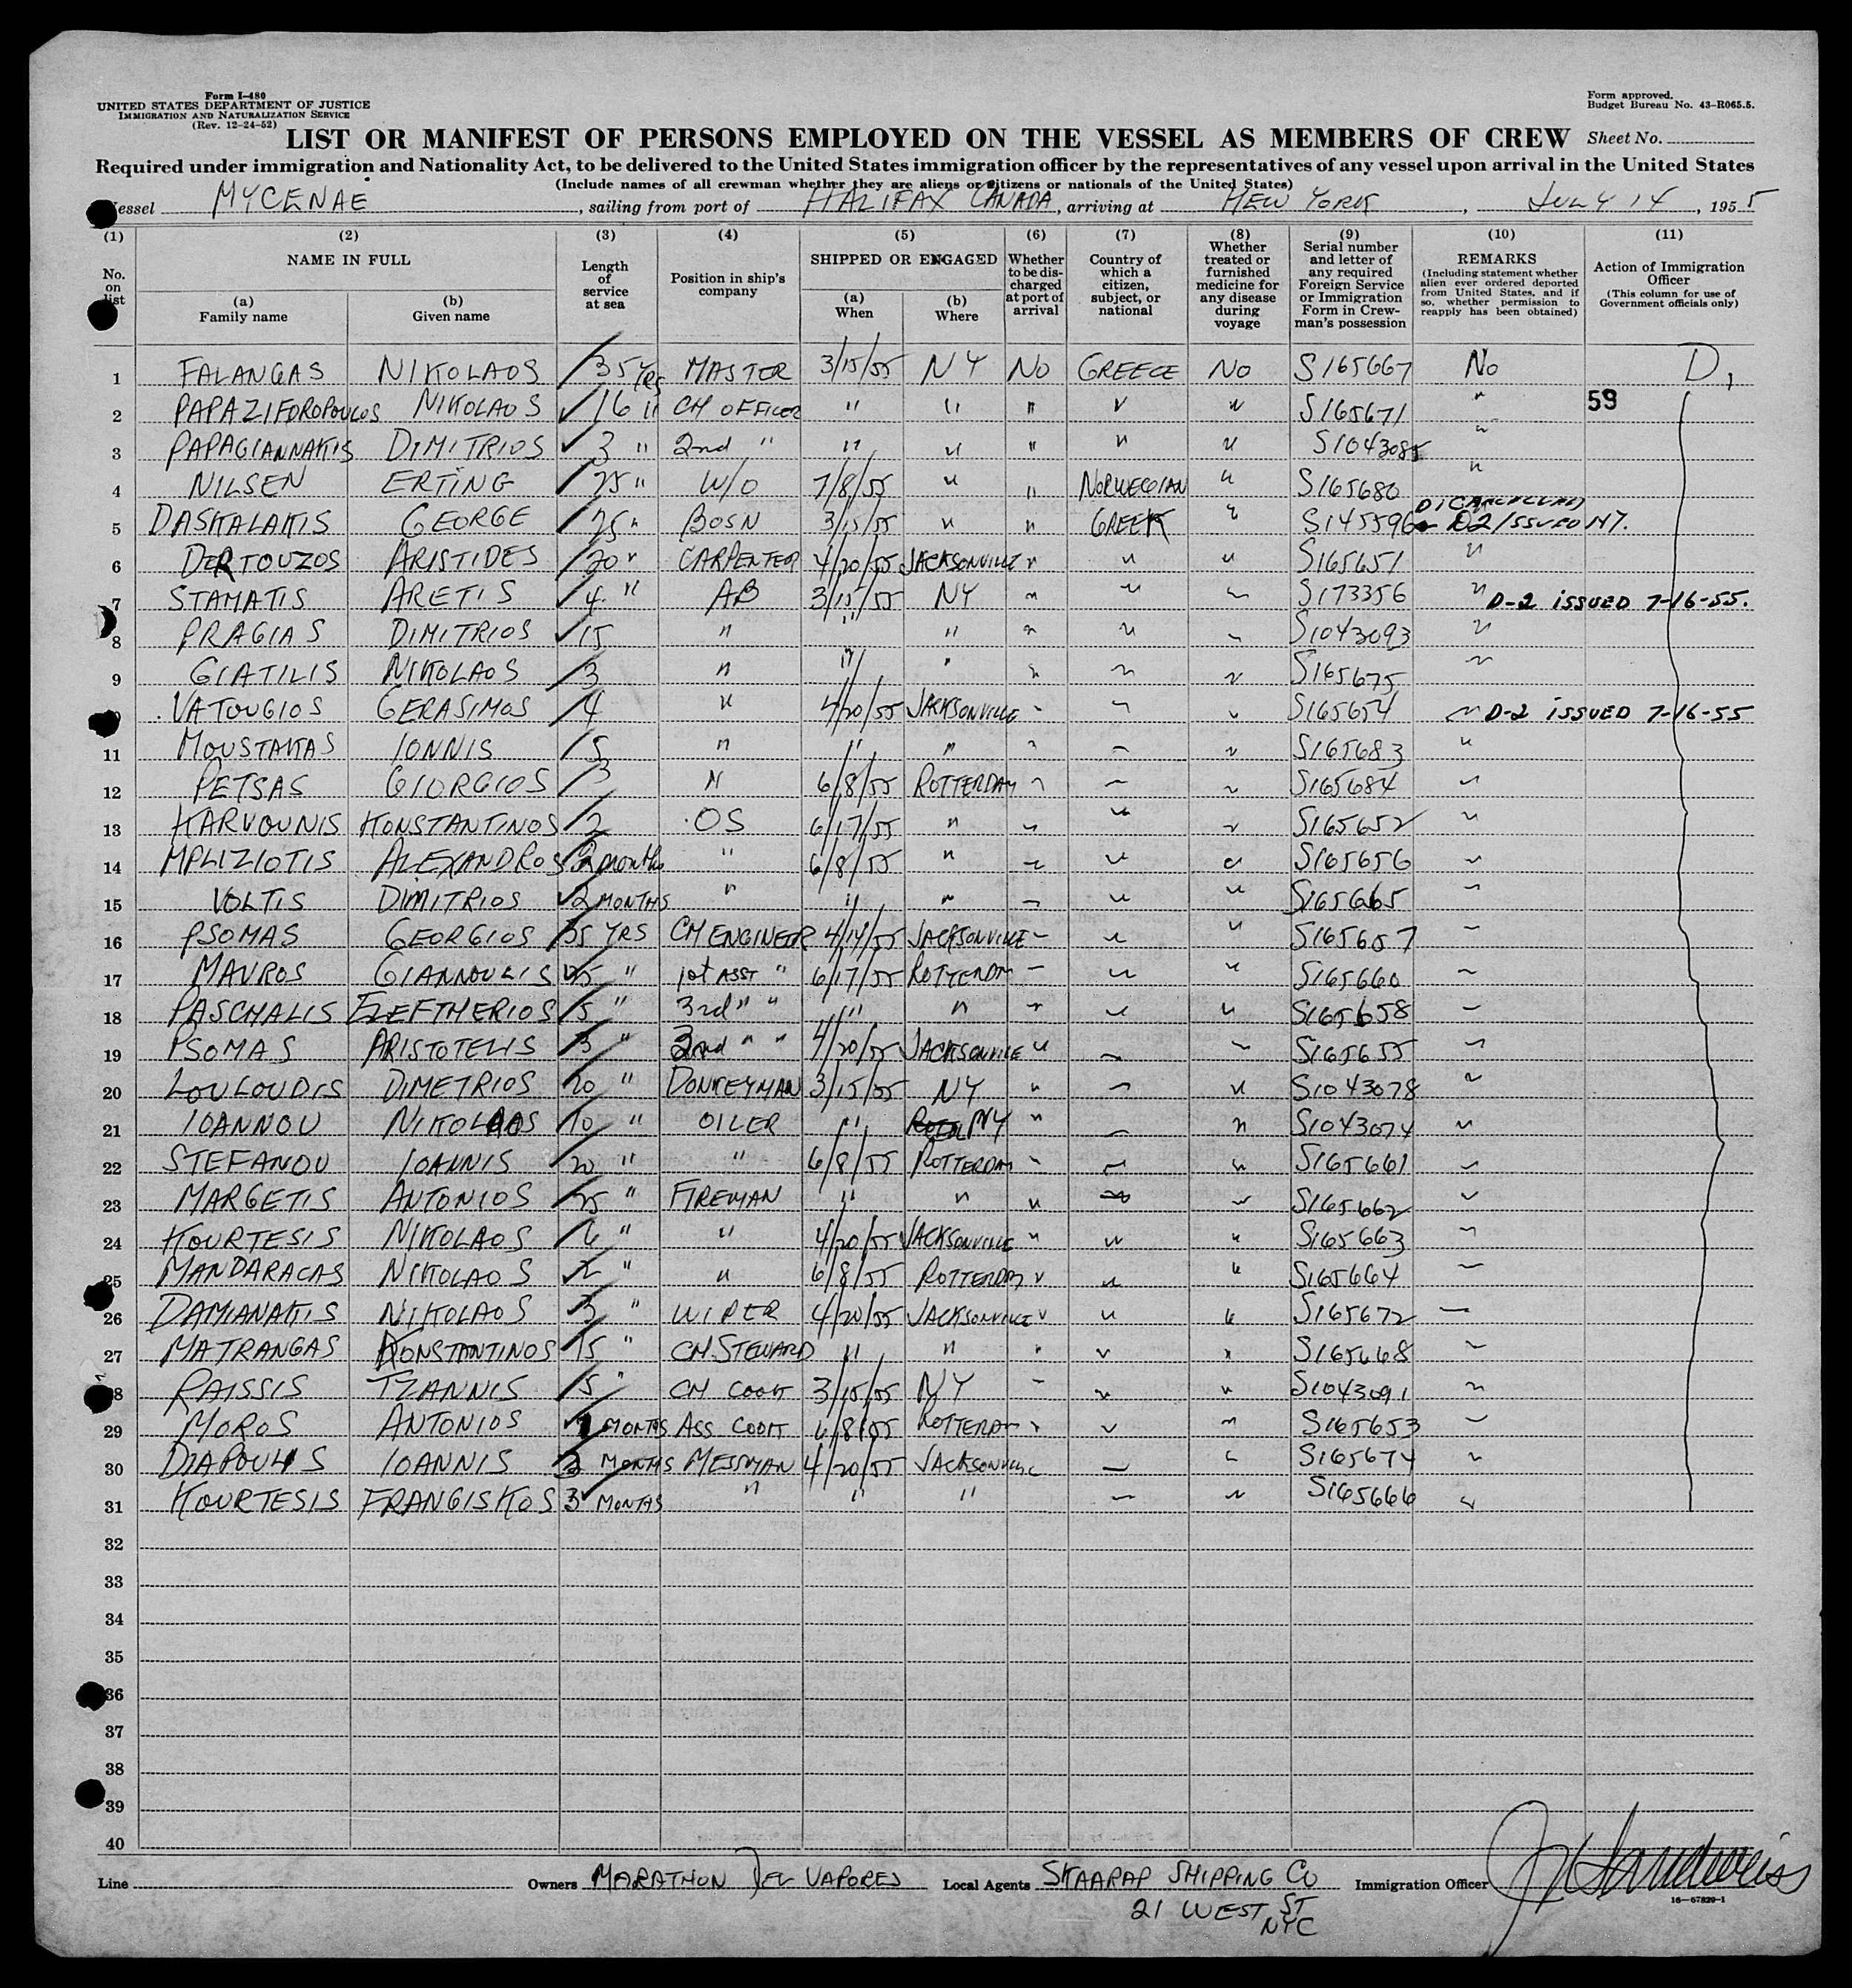 Form I-480
UNITED STATES DEPARTMENT OF JUSTICE
IMMIGRATION AND NATURALIZATION SERVICE
(Rev. 12-24-52)
Form approved.
Budget Bureau No. 43-R065.5.
LIST OR MANIFEST OF PERSONS EMPLOYED ON THE VESSEL AS MEMBERS OF CREW Sheet No.
Required under immigration and Nationality Act, to be delivered to the United States immigration officer by the representatives of any vessel upon arrival in the United States
(Include names of all crewman whether they are aliens or citizens or nationals of the United States)
Vessel MYCENAE, sailing from port of HALIFAX CANADA, arriving at NEW YORK, JULY 14, 1955
(1) No. on list
(2) NAME IN FULL
(a) Family name
(b) Given name
(3) Length of service at sea
(4) Position in ship's company
(5) SHIPPED OR ENGAGED
(a) When
(b) Where
(6) Whether to be discharged at port of arrival
(7) Country of which a citizen, subject, or national
(8) Whether treated or furnished medicine for any disease during voyage
(9) Serial number and letter of any required Foreign Service or Immigration Form in Crewman's possession
(10) REMARKS (Including statement whether alien ever ordered deported from United States, and if so, whether permission to reapply has been obtained)
(11) Action of Immigration Officer (This column for use of Government officials only)
1 FALANGAS NIKOLAOS 35 YRS MASTER 3/15/55 NY NO GREECE NO S165667 NO D1
2 PAPAZIFOROPOULOS NIKOLAOS 16 " CH OFFICER " " " " " S165671 " 59
3 PAPAGIANNAKIS DIMITRIOS 3 " 2nd " " " " " " S1043085 "
4 NILSEN ERTING 25 " W/O 7/8/55 " " NORWEGIAN " S165680 "
5 DASKALAKIS GEORGE 25 " BOSN 3/15/55 " " GREEK " S145596 D1 CANCELLED D2 ISSUED NY.
6 DERTOUZOS ARISTIDES 20 " CARPENTER 4/20/55 JACKSONVILLE " " " S165651 "
7 STAMATIS ARETIS 4 " AB 3/15/55 NY " " " S173356 " D-2 ISSUED 7-16-55.
8 PRAGIAS DIMITRIOS 15 " " " " " " S1043093 "
9 GIATILIS NIKOLAOS 3 " " " " " " S165675 "
10 VATOUGIOS GERASIMOS 4 " 4/20/55 JACKSONVILLE " " " S165654 " D-2 ISSUED 7-16-55
11 MOUSTAKAS IONNIS 5 " " " " " " S165683 "
12 PETSAS GIORGIOS 3 " 6/8/55 ROTTERDAM " " " S165684 "
13 KARVOUNIS KONSTANTINOS 2 OS 6/17/55 " " " " S165652 "
14 MPLIZIOTIS ALEXANDROS 2 months " 6/8/55 " " " " S165656 "
15 VOLTIS DIMITRIOS 2 MONTHS " " " " " " S165665 "
16 PSOMAS GEORGIOS 35 YRS CH ENGINEER 4/14/55 JACKSONVILLE " " " S165657 "
17 MAVROS GIANNOULIS 25 " 1st ASST " 6/17/55 ROTTERDM " " " S165660 "
18 PASCHALIS ELEFTHERIOS 5 " 3rd " " " " " " " S165658 "
19 PSOMAS ARISTOTELIS 3 " 2nd " " 4/20/55 JACKSONVILLE " " " S165655 "
20 LOULOUDIS DIMETRIOS 20 " DONKEYMAN 3/15/55 NY " " " S1043078 "
21 IOANNOU NIKOLAOS 10 " OILER " NY " " " S1043074 "
22 STEFANOU IOANNIS 20 " " 6/8/55 ROTTERDM " " " S165661 "
23 MARGETIS ANTONIOS 25 " FIREMAN " " " " " S165662 "
24 KOURTESIS NIKOLAOS 6 " " 4/20/55 JACKSONVILLE " " " S165663 "
25 MANDARACAS NIKOLAOS 2 " " 6/8/55 ROTTERDM " " " S165664 "
26 DAMIANAKIS NIKOLAOS 3 " WIPER 4/20/55 JACKSONVILLE " " " S165672 "
27 MATRANGAS KONSTANTINOS 15 " CH STEWARD " " " " " S165668 "
28 RAISSIS TZANNIS 5 " CH COOK 3/15/55 NY " " " S1043091 "
29 MOROS ANTONIOS MONTHS ASS COOK 6/8/55 ROTTERDM " " " S165653 "
30 DIAPOULIS IOANNIS 2 MONTHS MESSMAN 4/20/55 JACKSONVILLE " " S165674 "
31 KOURTESIS FRANGISKOS 3 MONTHS " " " " " S165666 "
32
33
34
35
36
37
38
39
40
Line Owners MARATHON DEL VAPORES Local Agents SKAARAP SHIPPING CO Immigration Officer
21 WEST ST
NYC
16-67829-1